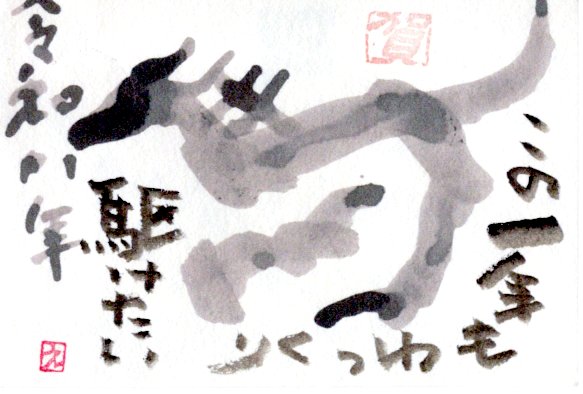 賀
この
一年も
ゆっくり
駆けたい
令和八年